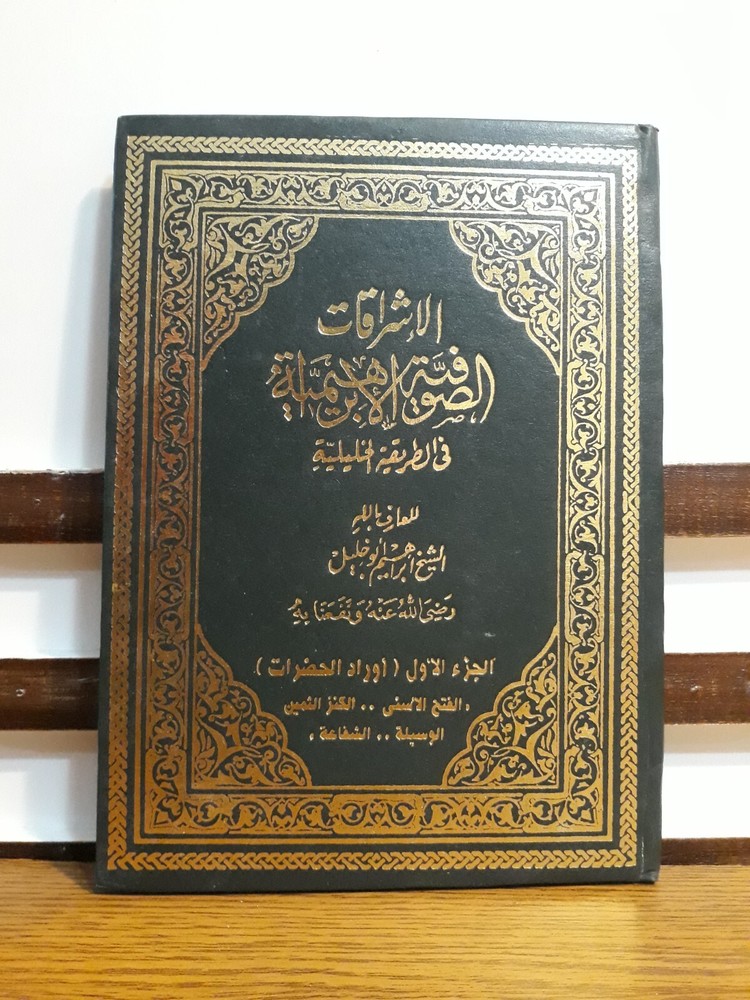 الإشراقات
الصوفية الإبراهيمية
في الطريقة الخليلية
للعارف بالله
الشيخ إبراهيم أبو خليل
رَضِيَ اللهُ عَنْهُ وَنَفَعَنَا بِهِ
الجزء الأول ( أوراد الحضرات )
« الفتح الأسنى .. الكنز الثمين
الوسيلة .. الشفاعة »